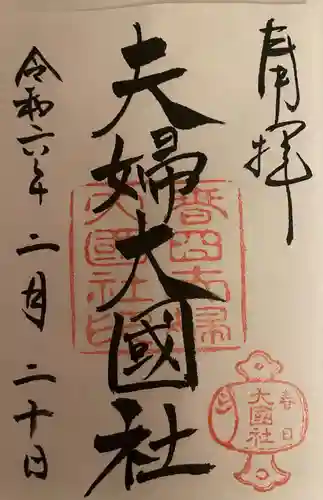 奉拝
夫婦大國社
令和六年二月二十日
春日夫婦大國社印
春日
大國社